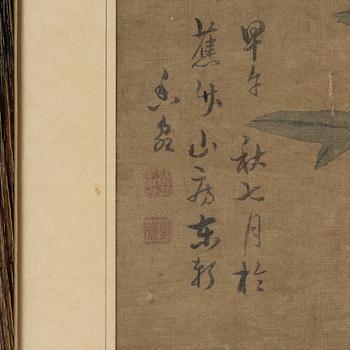 甲午秋七月於
蕉竹山房東軒